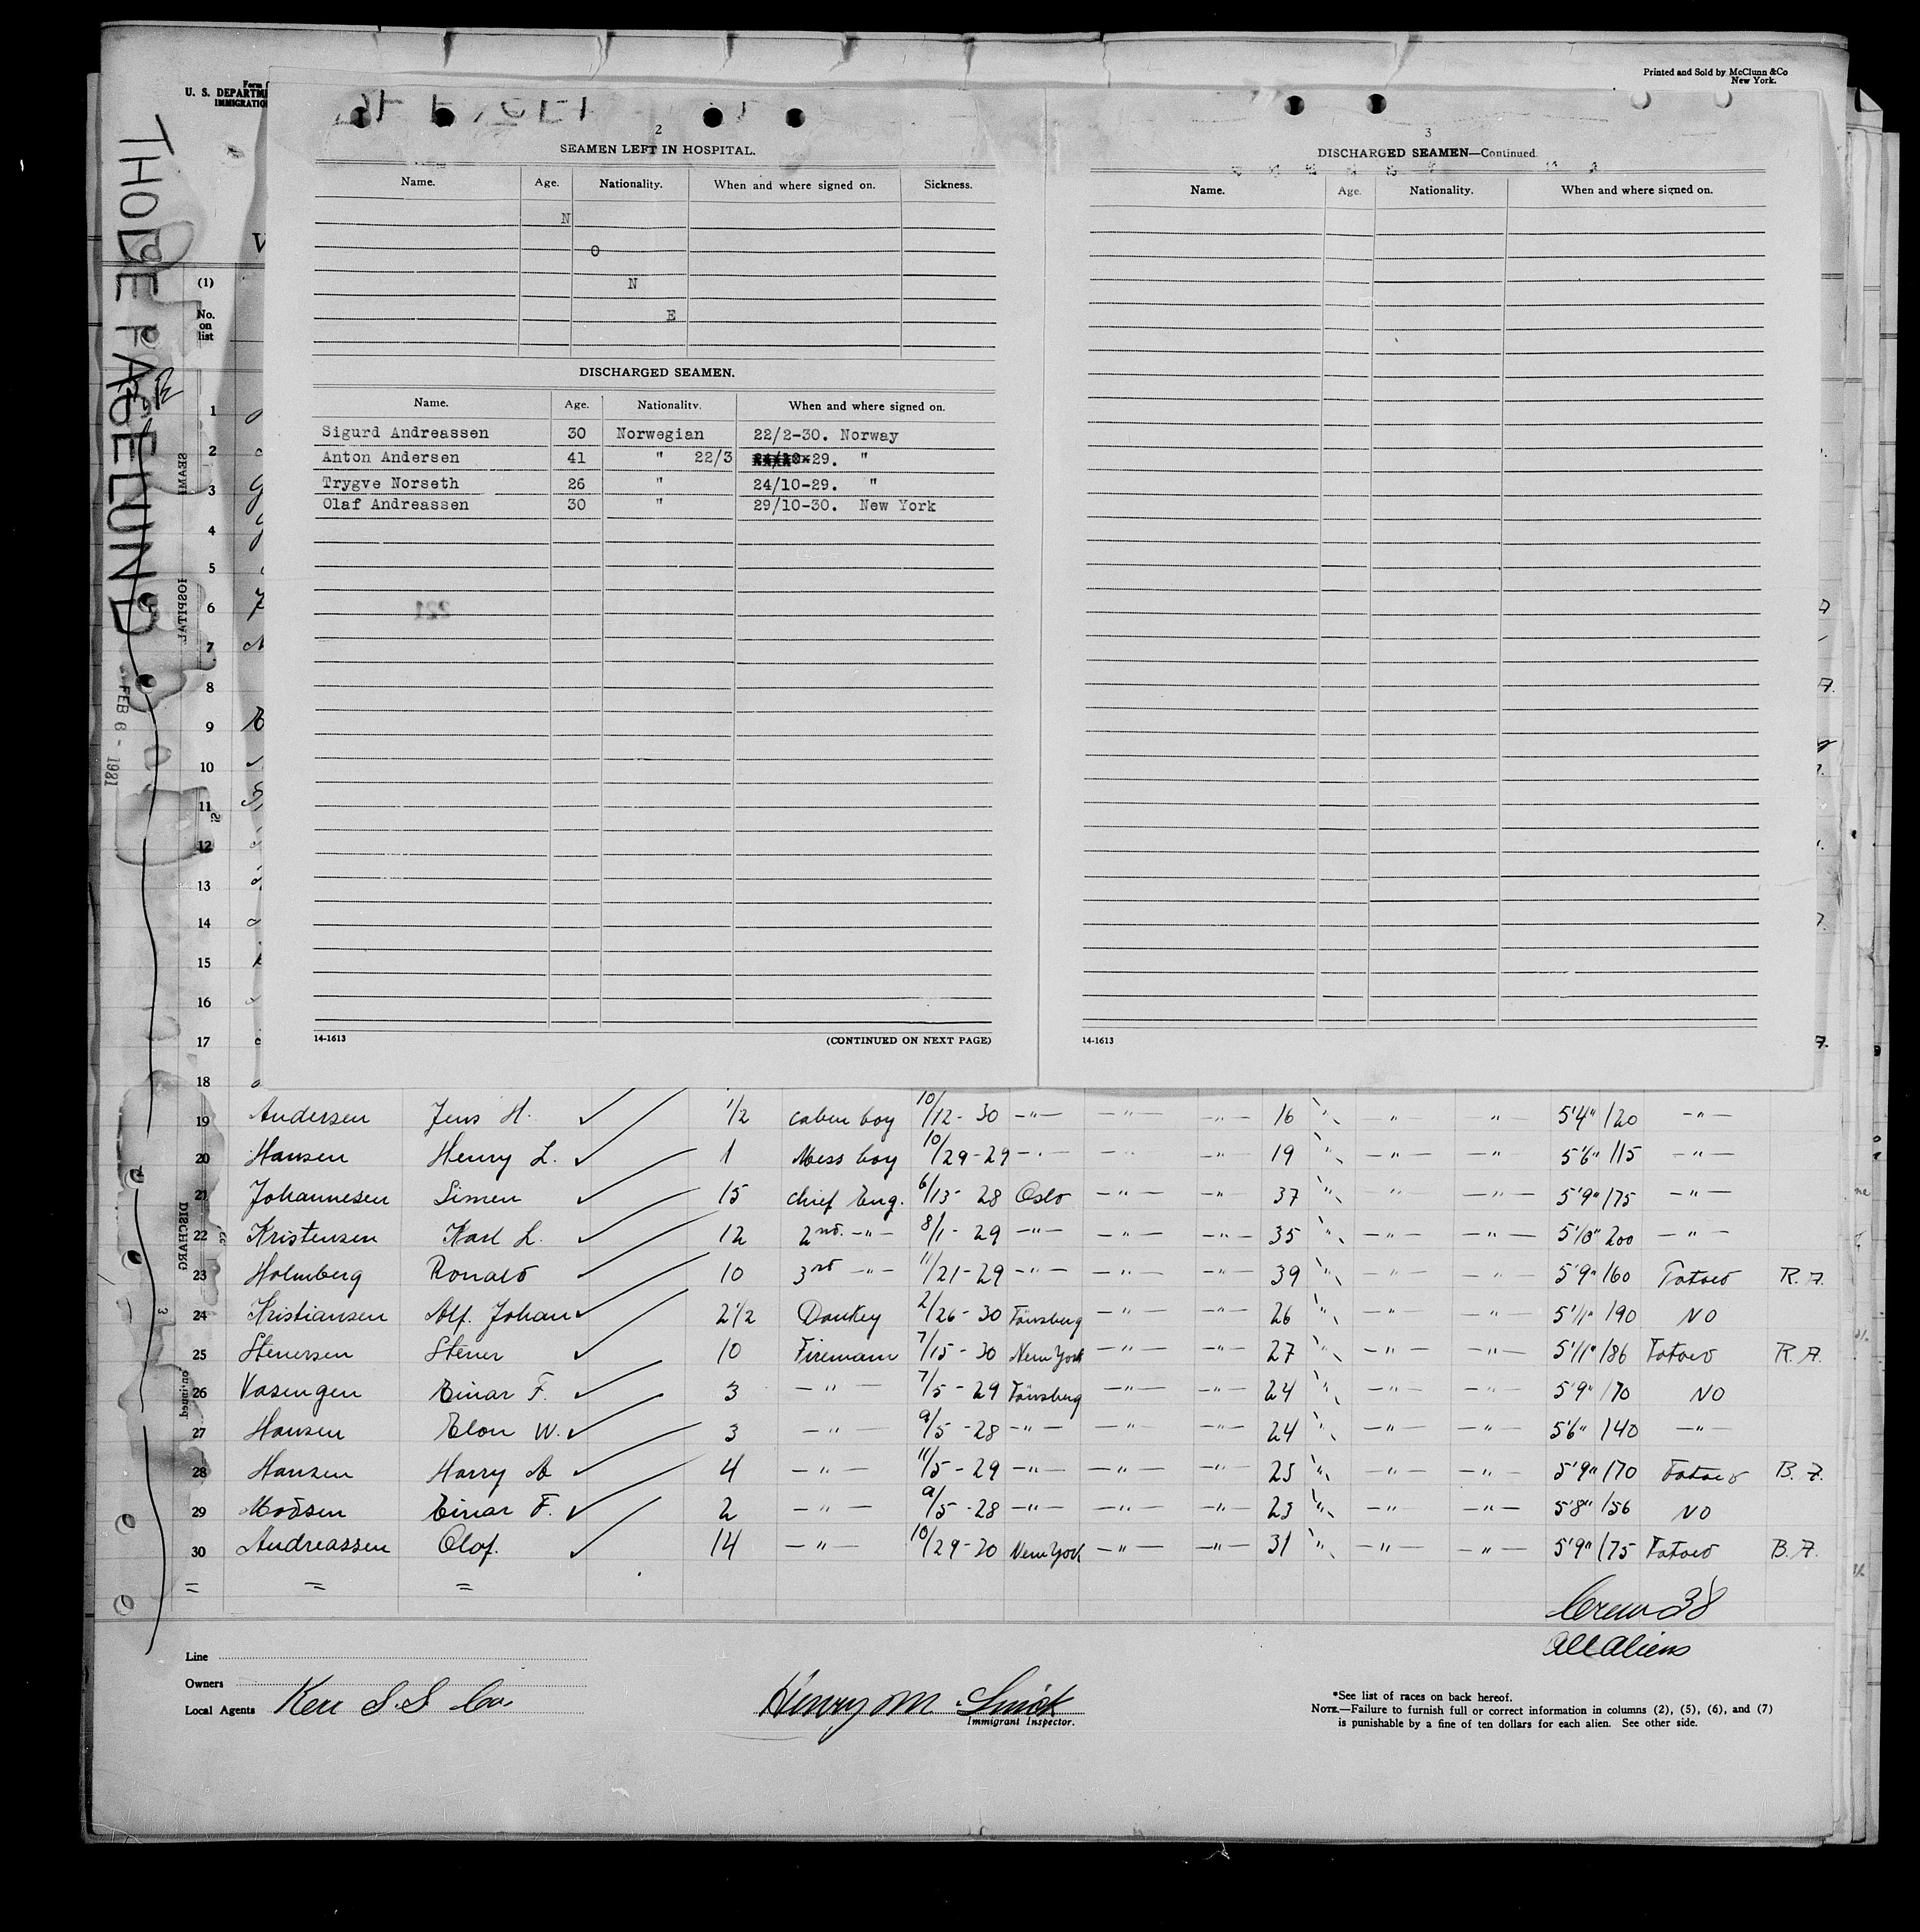 Printed and Sold by McClunn & Co
New York.
U. S. DEPARTM
IMMIGRATIO
THODE FAGELUND
FEB 6 - 1931
(1)
No.
on
list
2
SEAMEN LEFT IN HOSPITAL.
Name. Age. Nationality. When and where signed on. Sickness.
N
O
N
E
DISCHARGED SEAMEN.
Name. Age. Nationality. When and where signed on.
Sigurd Andreassen 30 Norwegian 22/2-30. Norway
Anton Andersen 41 " 22/3 29. "
Trygve Norseth 26 " 24/10-29. "
Olaf Andreassen 30 " 29/10-30. New York
14-1613 (CONTINUED ON NEXT PAGE)
3
DISCHARGED SEAMEN—Continued.
Name. Age. Nationality. When and where signed on.
14-1613
1
2
3
4
5
6
7
8
9
10
11
12
13
14
15
16
17
18
19 Andersen Jens H. ✓ 1/2 caben boy 10/12-30 -"- -"- -"- 16 " " " 5'4" 120 -"-
20 Hansen Henry L. ✓ 1 Mess boy 10/29-29 -"- -"- -"- 19 " -"- -"- 5'6" 115 -"-
21 Johannesen Simen ✓ 15 chief Eng. 6/13-28 Oslo -"- -"- 37 " " -"- 5'9" 175 -"-
22 Kristensen Karl L. ✓ 12 2nd. -"- 8/1-29 -"- -"- -"- 35 " -"- -"- 5'10" 200 -"-
23 Holmberg Ronald ✓ 10 3rd -"- 11/21-29 -"- -"- -"- 39 " -"- -"- 5'9" 160 Tatoed R.A.
24 Kristiansen Alf. Johan ✓ 2 1/2 Donkey 2/26-30 Tönsberg -"- -"- 26 " -"- " 5'11" 190 NO
25 Stenersen Stener ✓ 10 Firemann 7/15-30 New York -"- -"- 27 " -"- -"- 5'11" 186 Tatoed R.A.
26 Vasengen Einar F. ✓ 3 -"- 7/5-29 Tönsberg -"- -"- 24 " -"- -"- 5'9" 170 NO
27 Hansen Elon W. ✓ 3 -"- 9/5-28 -"- -"- -"- 24 " -"- -"- 5'6" 140 -"-
28 Hansen Harry A ✓ 4 -"- 11/5-29 -"- -"- -"- 25 " -"- -"- 5'9" 170 Tatoed B.A.
29 Madsen Einar F. ✓ 2 -"- 9/5-28 -"- -"- -"- 23 " -"- -"- 5'8" 156 NO
30 Andreassen Olaf. ✓ 14 -"- 10/29-30 New York -"- -"- 31 " -"- -"- 5'9" 175 Tatoed B.A.
= = =
Crew 38
all aliens
Line
Owners
Local Agents Kerr S.S. Co.
Henry M.
Immigrant Inspector.
*See list of races on back hereof.
NOTE.—Failure to furnish full or correct information in columns (2), (5), (6), and (7)
is punishable by a fine of ten dollars for each alien. See other side.